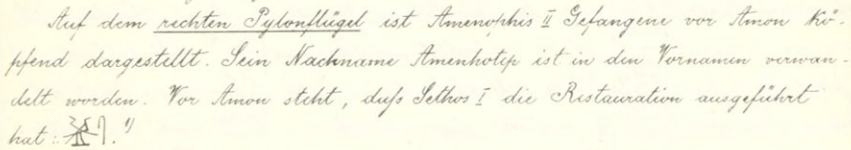 Auf dem rechten Pylonflügel ist Amenophis II Gefangene vor Amon kö-
pfend dargestellt. Sein Nachname Amenhotep ist in den Vornamen verwan-
delt worden. Vor Amon steht, daß Sethos I die Restauration ausgeführt
hat: 1)